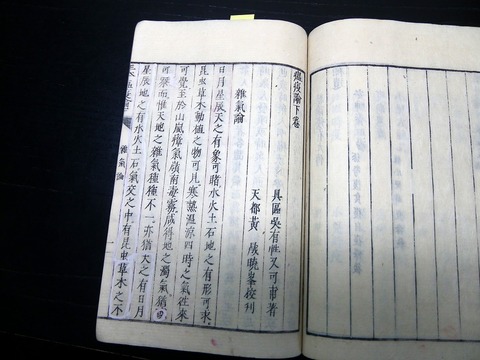 瘟疫論下卷
具區吳有性又可甫著
天都黃 晟曉峯校刊
雜氣論
日月星辰天之有象可睹水火土石地之有形可求
昆虫草木動植之物可見寒熱温涼四時之氣往來
可覺至於山嵐瘴氣嶺南毒霧咸得地之濁氣猶或
可察而惟天地之雜氣種種不一亦猶天之有日月
星辰地之有水火土石氣交之中有昆虫草木之不
雜氣論
一